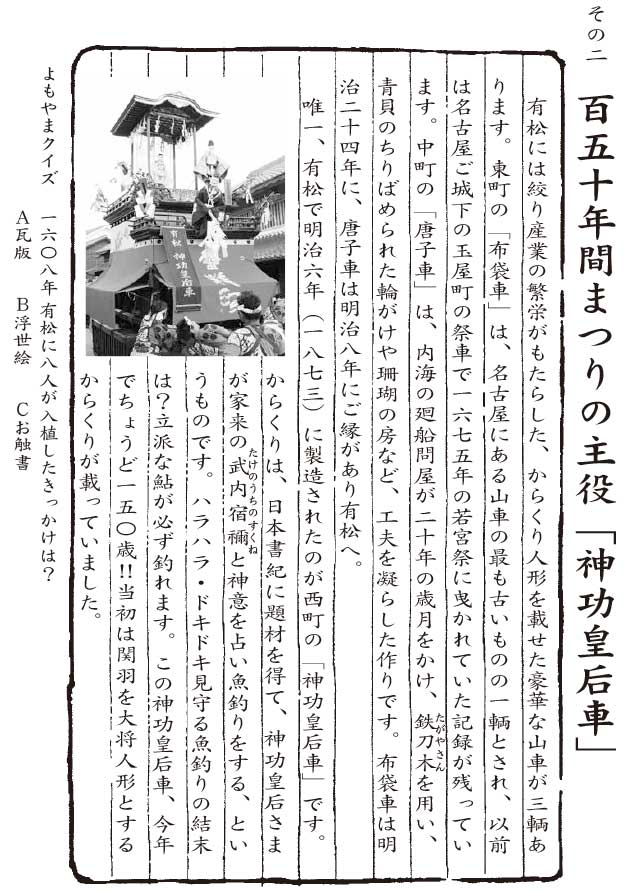 その二　百五十年間まつりの主役「神功皇后車」
有松には絞り産業の繁栄がもたらした、からくり人形を載せた豪華な山車が三輌あ
ります。東町の「布袋車」は、名古屋にある山車の最も古いものの一輌とされ、以前
は名古屋ご城下の玉屋町の祭車で一六七五年の若宮祭に曳かれていた記録が残ってい
ます。中町の「唐子車」は、内海の廻船問屋が二十年の歳月をかけ、鉄刀木を用い、
たがやさん
青貝のちりばめられた輪がけや珊瑚の房など、工夫を凝らした作りです。布袋車は明
治二十四年に、唐子車は明治八年にご縁があり有松へ。
唯一、有松で明治六年（一八七三）に製造されたのが西町の「神功皇后車」です。
からくりは、日本書紀に題材を得て、神功皇后さま
が家来の武内宿禰と神意を占い魚釣りをする、とい
たけのうちのすくね
うものです。ハラハラ・ドキドキ見守る魚釣りの結末
は？立派な鮎が必ず釣れます。この神功皇后車、今年
でちょうど一五〇歳!!当初は関羽を大将人形とする
からくりが載っていました。
有松 神功皇后車
よもやまクイズ　一六〇八年 有松に八人が入植したきっかけは？
A瓦版　B浮世絵　Cお触書